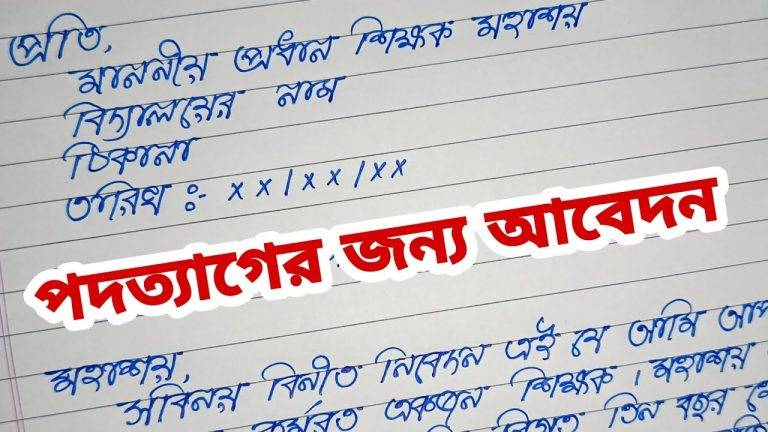 প্রতি,
মাননীয় প্রধান শিক্ষক মহাশয়
বিদ্যালয়ের নাম
ঠিকানা
তারিখ :- xx/xx/xx
পদত্যাগের জন্য আবেদন
মহাশয়,
সবিনয় বিনীত নিবেদন এই যে আমি
কর্মরত একজন শিক্ষক । মহাশয়
বিগত তিন বছর